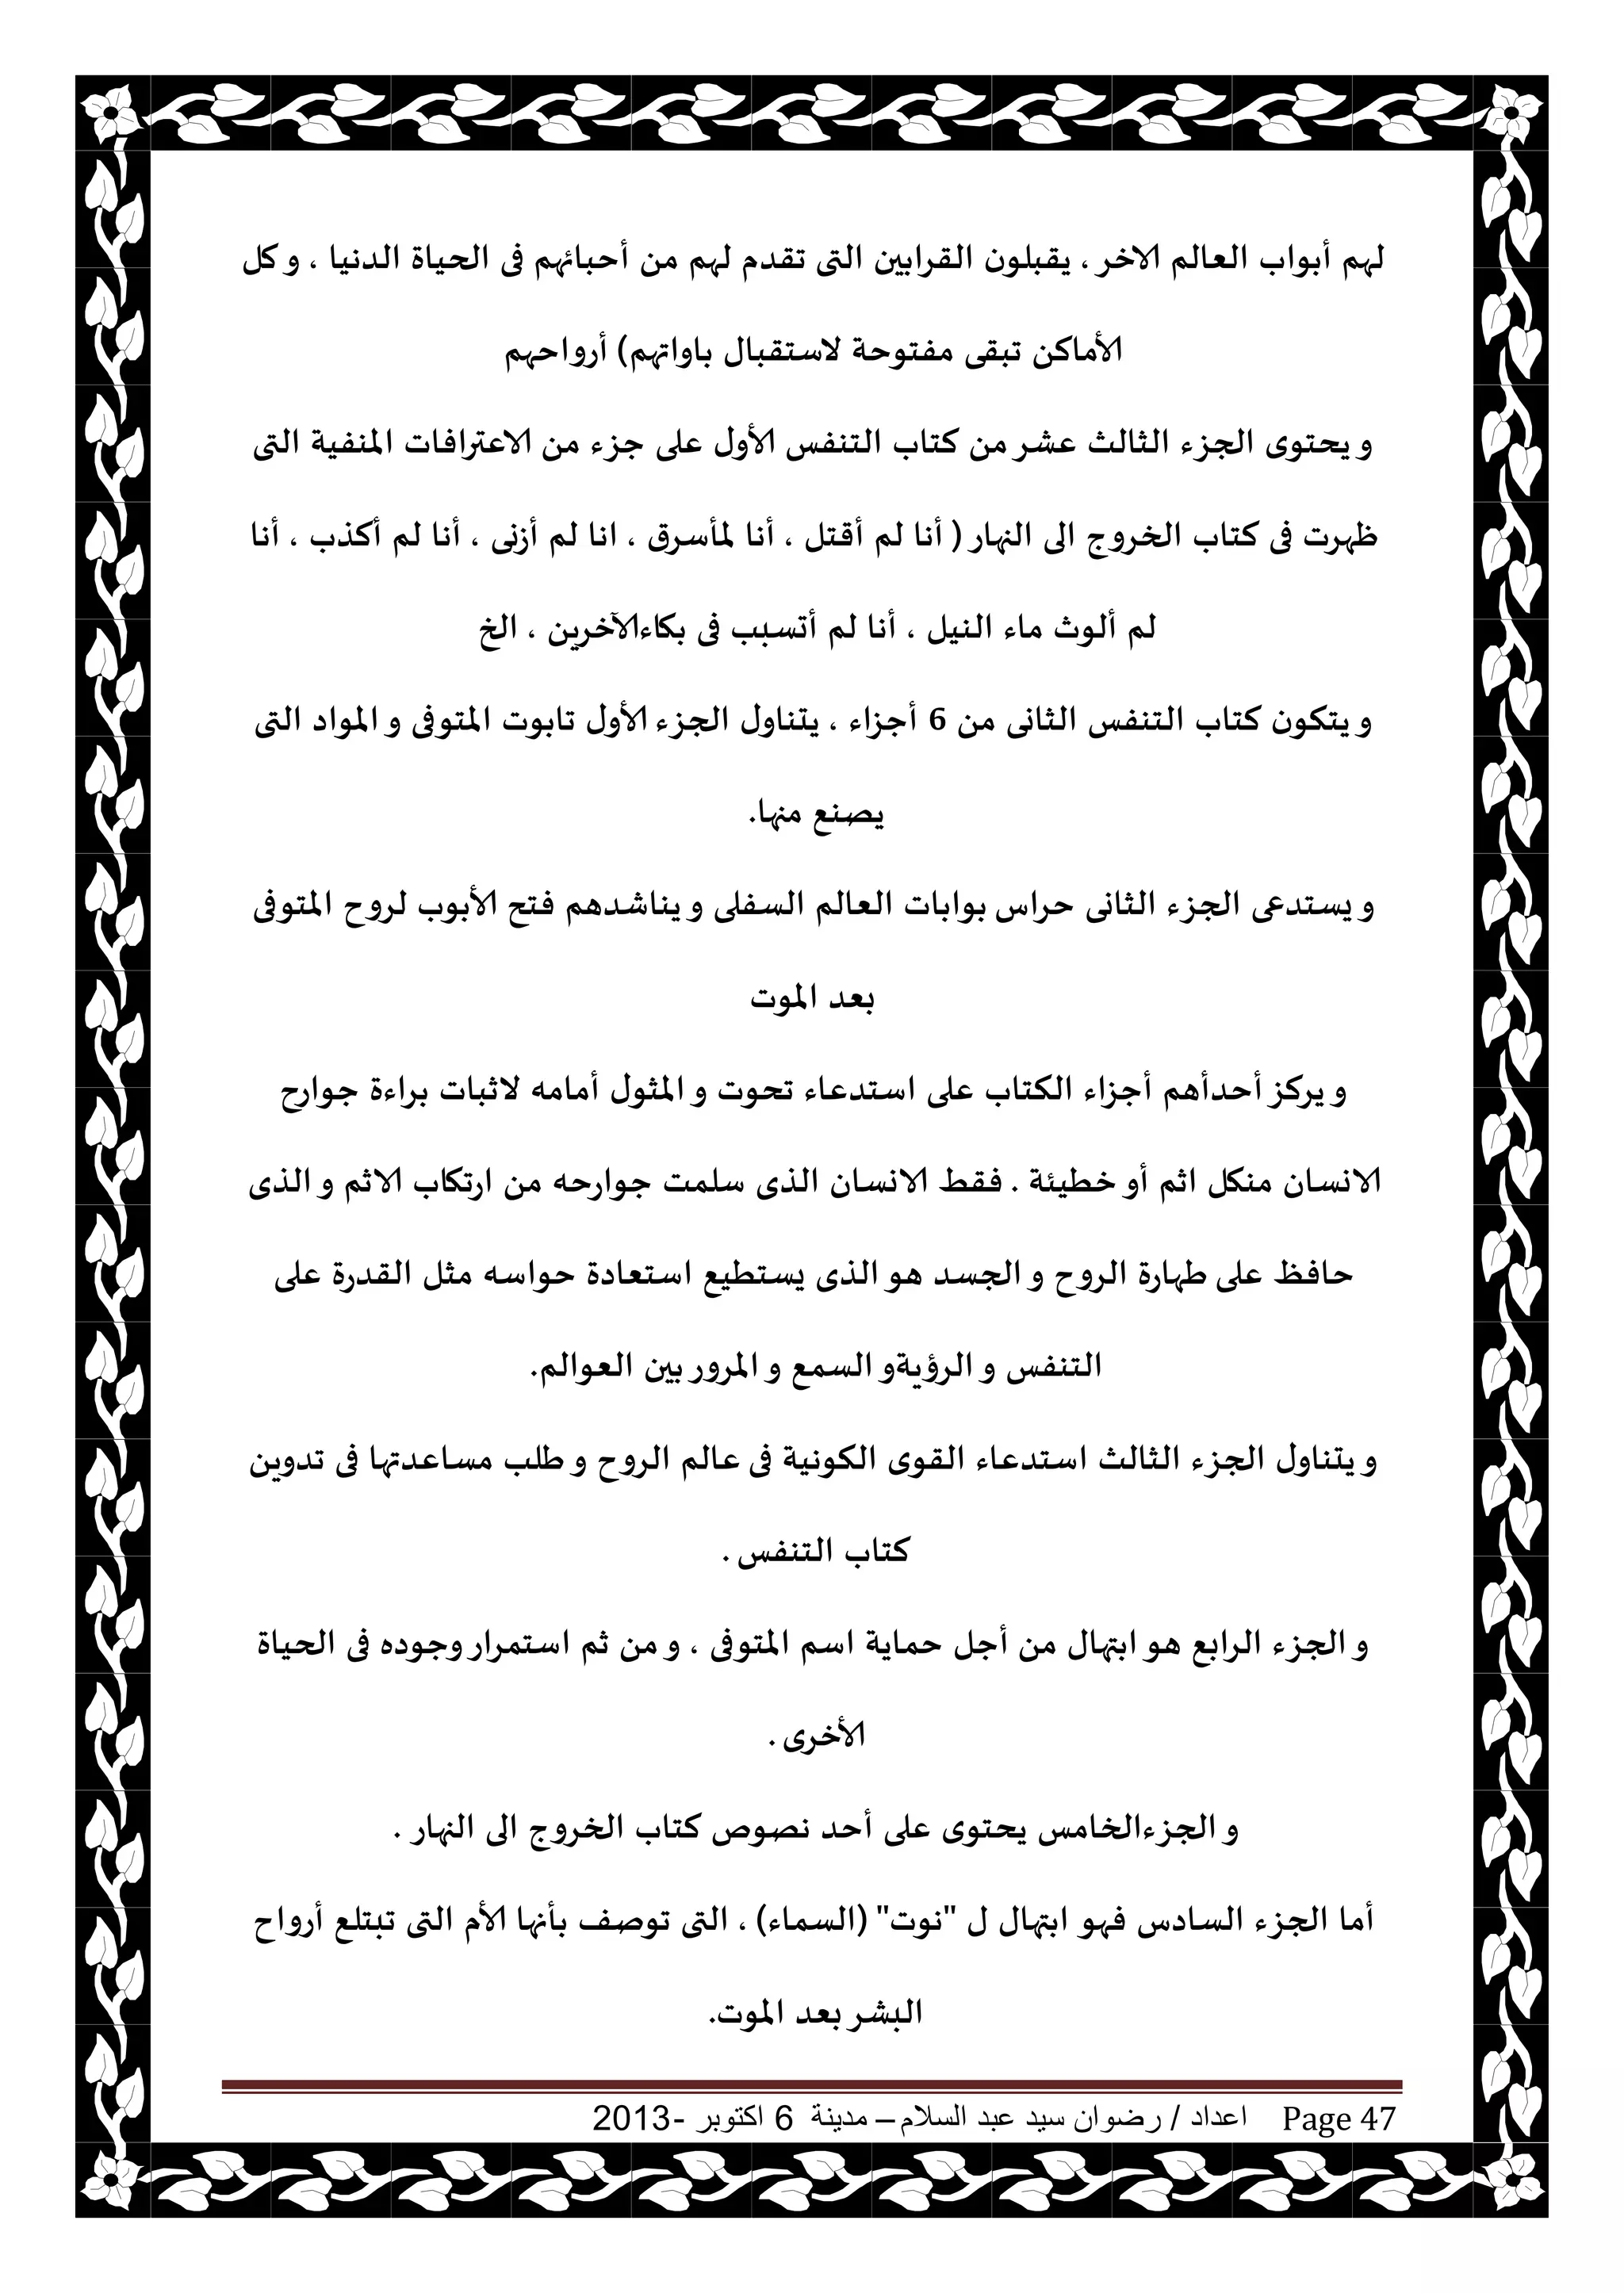 لهم أبواب العالم الاخر ، يقبلون القرابين التى تقدم لهم من أحبائهم فى الحياة الدنيا ، و كل
الأماكن تبقى مفتوحة لاستقبال باواتهم) أرواحهم
و يحتوى الجزء الثالث عشر من كتاب التنفس الأول على جزء من الاعترافات المنفية التى
ظهرت فى كتاب الخروج الى النهار ( أنا لم أقتل ، أنا لمأسرق ، انا لم أزنى ، أنا لم أكذب ، أنا
لم ألوث ماء النيل ، أنا لم أتسبب فى بكاءالآخرين ، الخ
و يتكون كتاب التنفس الثانى من 6 أجزاء ، يتناول الجزء الأول تابوت المتوفى و المواد التى
يصنع منها.
و يستدعى الجزء الثانى حراس بوابات العالم السفلى و يناشدهم فتح الأبوب لروح المتوفى
بعد الموت
و يركز أحدأهم أجزاء الكتاب على استدعاء تحوت و المثول أمامه لاثبات براءة جوارح
الانسان منكل اثم أو خطيئة . فقط الانسان الذى سلمت جوارحه من ارتكاب الاثم و الذى
حافظ على طهارة الروح و الجسد هو الذى يستطيع استعادة حواسه مثل القدرة على
التنفس و الرؤيةو السمع و المرور بين العوالم.
و يتناول الجزء الثالث استدعاء القوى الكونية فى عالم الروح و طلب مساعدتها فى تدوين
كتاب التنفس .
و الجزء الرابع هو ابتهال من أجل حماية اسم المتوفى ، و من ثم استمرار وجوده فى الحياة
الأخرى .
و الجزءالخامس يحتوى على أحد نصوص كتاب الخروج الى النهار .
أما الجزء السادس فهو ابتهال ل "نوت" (السماء) ، التى توصف بأنها الأم التى تبتلع أرواح
البشر بعد الموت.
Page 47 اعداد / رضوان سيد عبد السلام – مدينة 6 اكتوبر - 2013